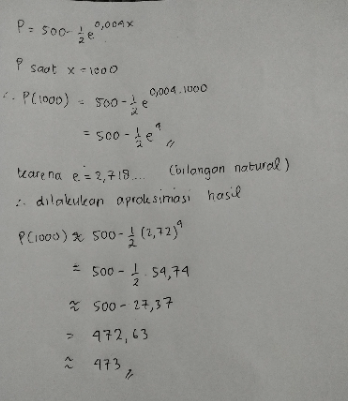 P = 500 - 1/2 e^0,004x
P saat x = 1000
∴ P(1000) = 500 - 1/2 e^0,004.1000
= 500 - 1/2 e^4 //
karena e = 2,718... (bilangan natural)
∴ dilakukan aproksimasi hasil
P(1000) ≈ 500 - 1/2 (2,72)^4
= 500 - 1/2 . 54,74
≈ 500 - 27,37
= 472,63
≈ 473 //